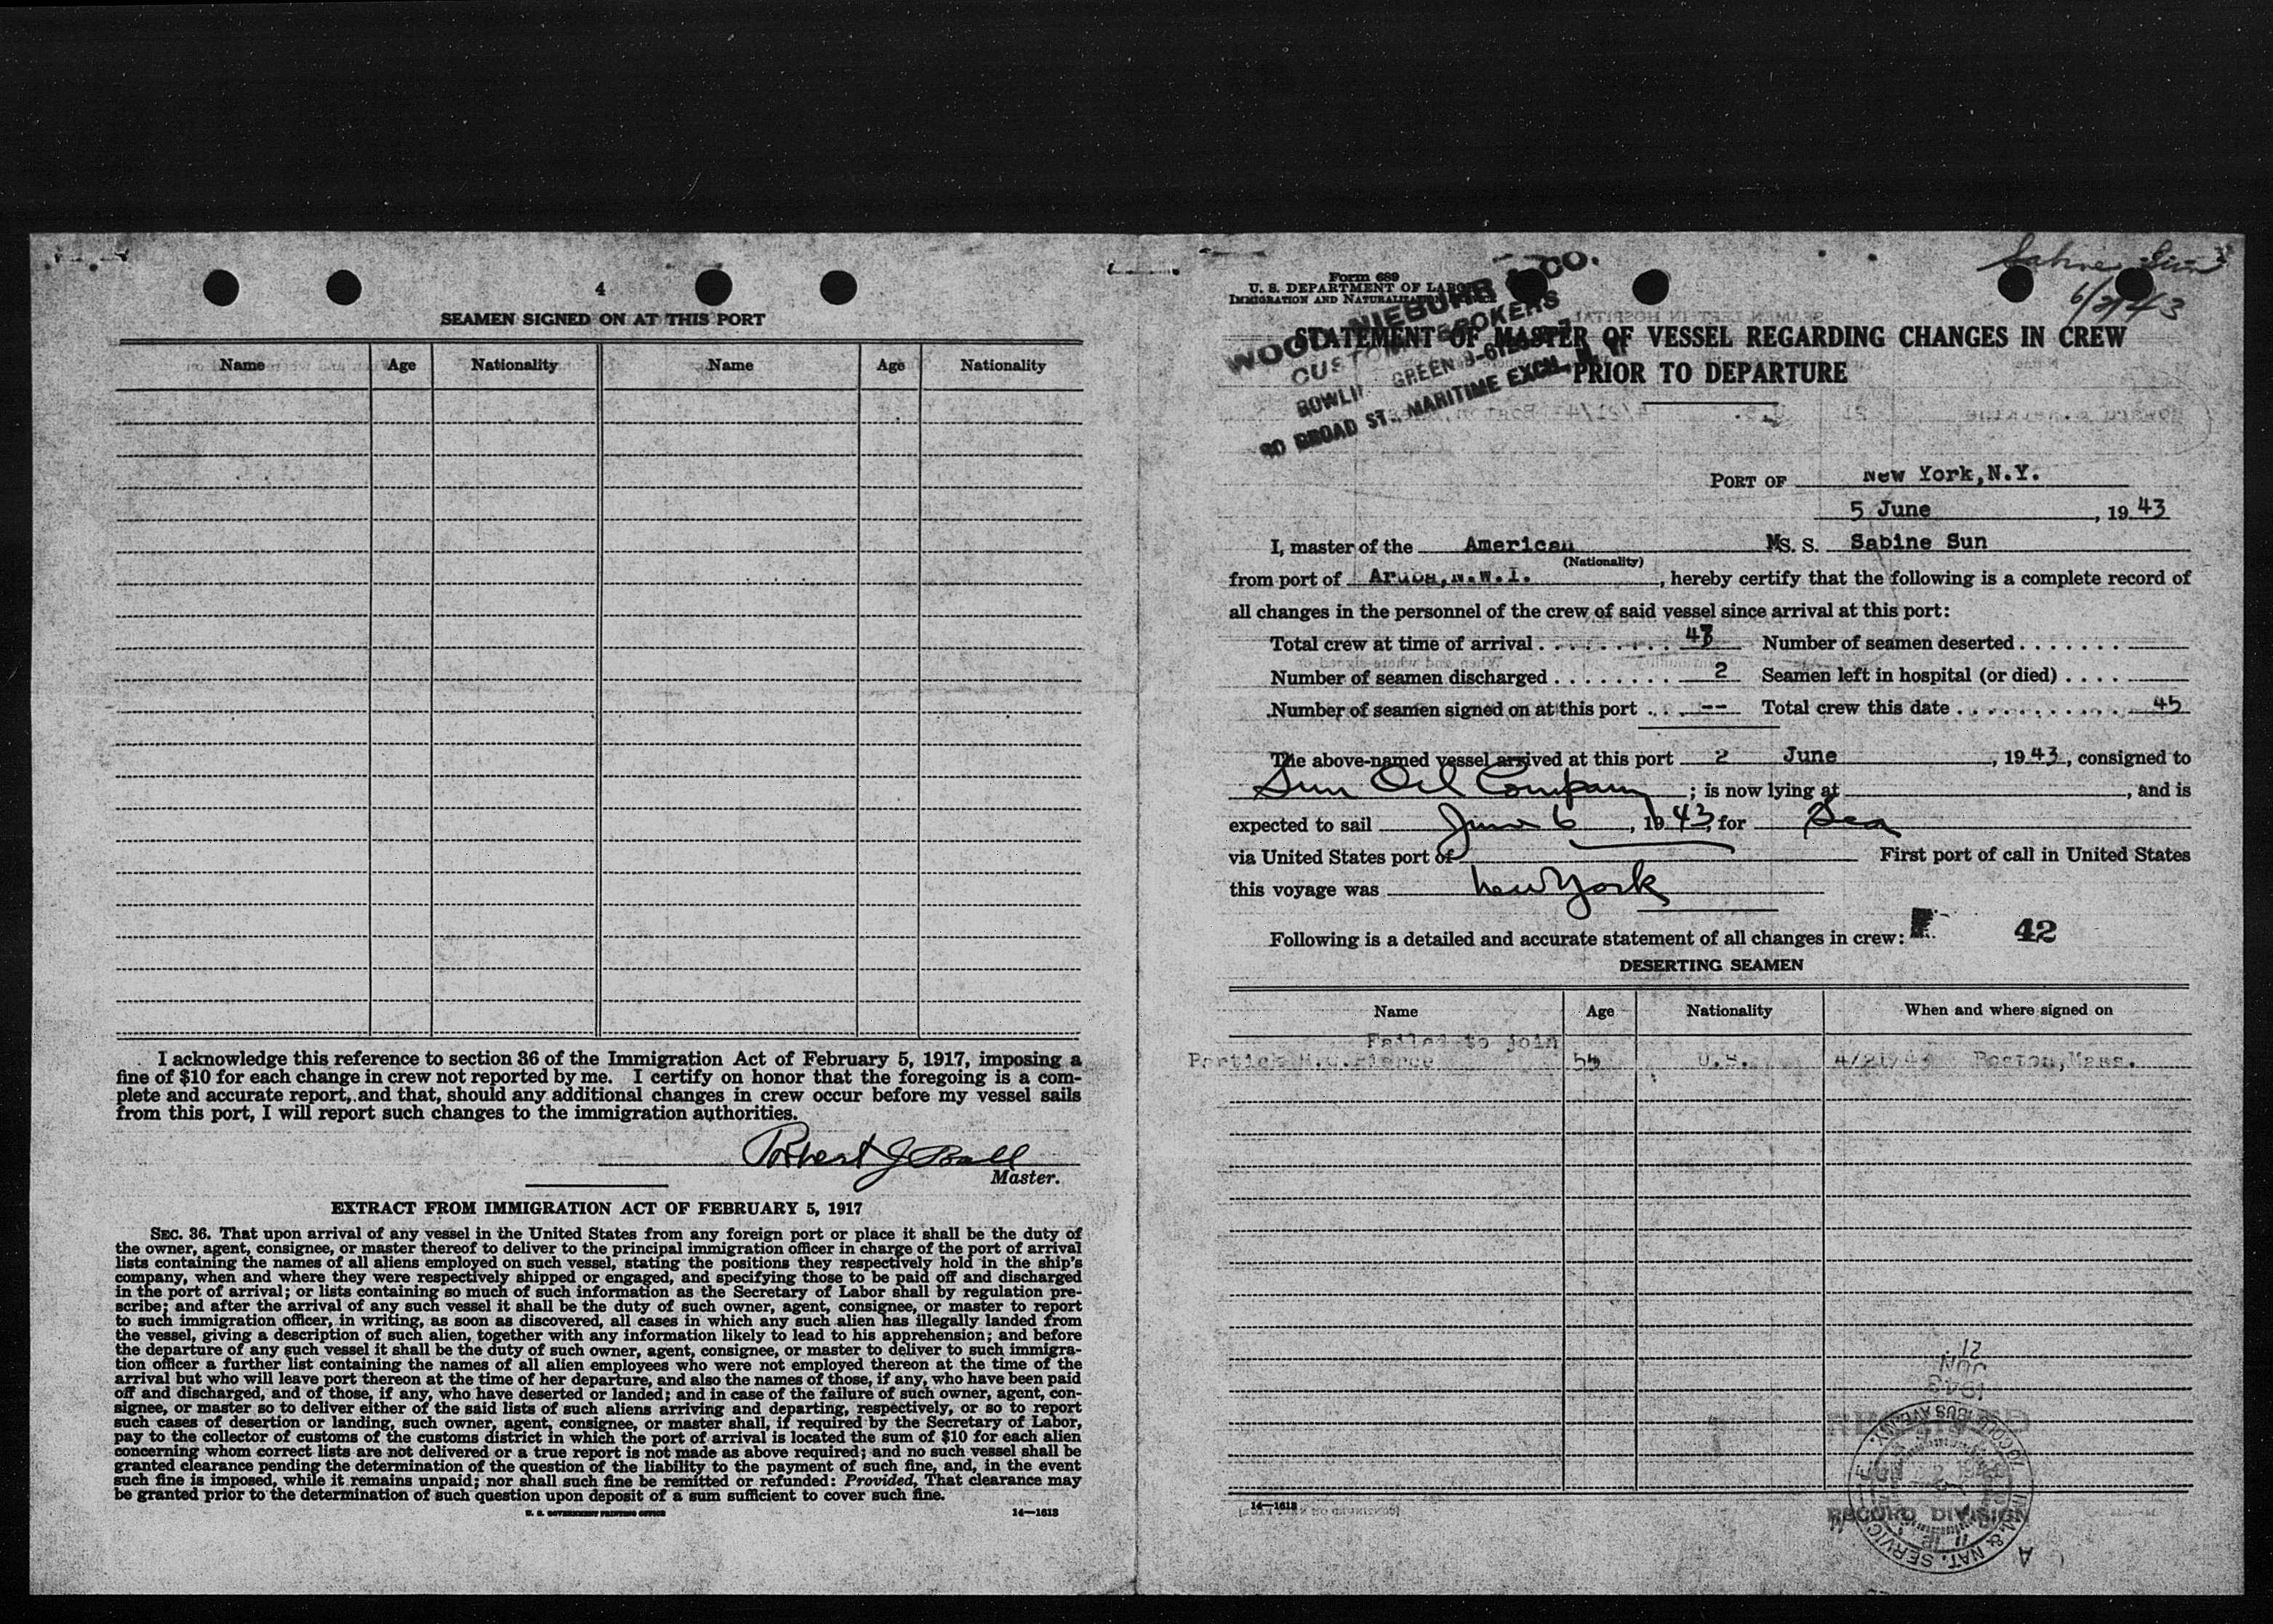 4
SEAMEN SIGNED ON AT THIS PORT
Name Age Nationality Name Age Nationality
I acknowledge this reference to section 36 of the Immigration Act of February 5, 1917, imposing a
fine of $10 for each change in crew not reported by me. I certify on honor that the foregoing is a com-
plete and accurate report, and that, should any additional changes in crew occur before my vessel sails
from this port, I will report such changes to the immigration authorities.
Robert J Ball
Master.
EXTRACT FROM IMMIGRATION ACT OF FEBRUARY 5, 1917
SEC. 36. That upon arrival of any vessel in the United States from any foreign port or place it shall be the duty of
the owner, agent, consignee, or master thereof to deliver to the principal immigration officer in charge of the port of arrival
lists containing the names of all aliens employed on such vessel, stating the positions they respectively hold in the ship's
company, when and where they were respectively shipped or engaged, and specifying those to be paid off and discharged
in the port of arrival; or lists containing so much of such information as the Secretary of Labor shall by regulation pre-
scribe; and after the arrival of any such vessel it shall be the duty of such owner, agent, consignee, or master to report
to such immigration officer, in writing, as soon as discovered, all cases in which any such alien has illegally landed from
the vessel, giving a description of such alien, together with any information likely to lead to his apprehension; and before
the departure of any such vessel it shall be the duty of such owner, agent, consignee, or master to deliver to such immigra-
tion officer a further list containing the names of all alien employees who were not employed thereon at the time of the
arrival but who will leave port thereon at the time of her departure, and also the names of those, if any, who have been paid
off and discharged, and of those, if any, who have deserted or landed; and in case of the failure of such owner, agent, con-
signee, or master so to deliver either of the said lists of such aliens arriving and departing, respectively, or so to report
such cases of desertion or landing, such owner, agent, consignee, or master shall, if required by the Secretary of Labor,
pay to the collector of customs of the customs district in which the port of arrival is located the sum of $10 for each alien
concerning whom correct lists are not delivered or a true report is not made as above required; and no such vessel shall be
granted clearance pending the determination of the question of the liability to the payment of such fine, and, in the event
such fine is imposed, while it remains unpaid; nor shall such fine be remitted or refunded: Provided, That clearance may
be granted prior to the determination of such question upon deposit of a sum sufficient to cover such fine.
U. S. GOVERNMENT PRINTING OFFICE 14—1613
Sabine Sun
6/2/43
Form 689
U. S. DEPARTMENT OF LABOR
IMMIGRATION AND NATURALIZATION SERVICE
NIEBUHR & CO.
CUSTOM BROKERS
BOWLING GREEN
80 BROAD ST., MARITIME EXCH.
STATEMENT OF MASTER OF VESSEL REGARDING CHANGES IN CREW
PRIOR TO DEPARTURE
PORT OF New York,N.Y.
5 June, 1943
I, master of the American MS. S. Sabine Sun
(Nationality)
from port of Aruba,N.W.I., hereby certify that the following is a complete record of
all changes in the personnel of the crew of said vessel since arrival at this port:
Total crew at time of arrival Number of seamen deserted
Number of seamen discharged 2 Seamen left in hospital (or died)
Number of seamen signed on at this port -- Total crew this date 45
The above-named vessel arrived at this port 2 June, 1943, consigned to
Sun Oil Company; is now lying at , and is
expected to sail June 6, 1943, for Sea
via United States port of First port of call in United States
this voyage was New York
Following is a detailed and accurate statement of all changes in crew: 42
DESERTING SEAMEN
Name Age Nationality When and where signed on
Failed to join
Pierce U.S. 4/21/43 Boston,Mass.
21
JUN
1943
RECORD DIVISION
14—1613